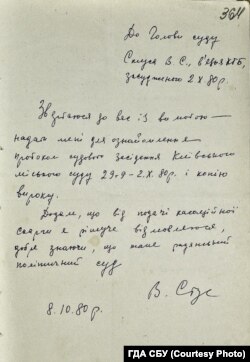 364
До Голови суду
Стуса В. С., в'язня КГБ,
засудженого 2.X.80р.
Звертаюся до Вас із вимогою —
надати мені для ознайомлення
протокол судового засідання Київського
міського суду 29.9-2.X.80р. і копію
вироку.
Додам, що від подачі касаційної
скарги я рішуче відмовляюся,
добре знаючи, що таке радянський
політичний суд
В. Стус
8.10.80р.
ГДА СБУ (Courtesy Photo)